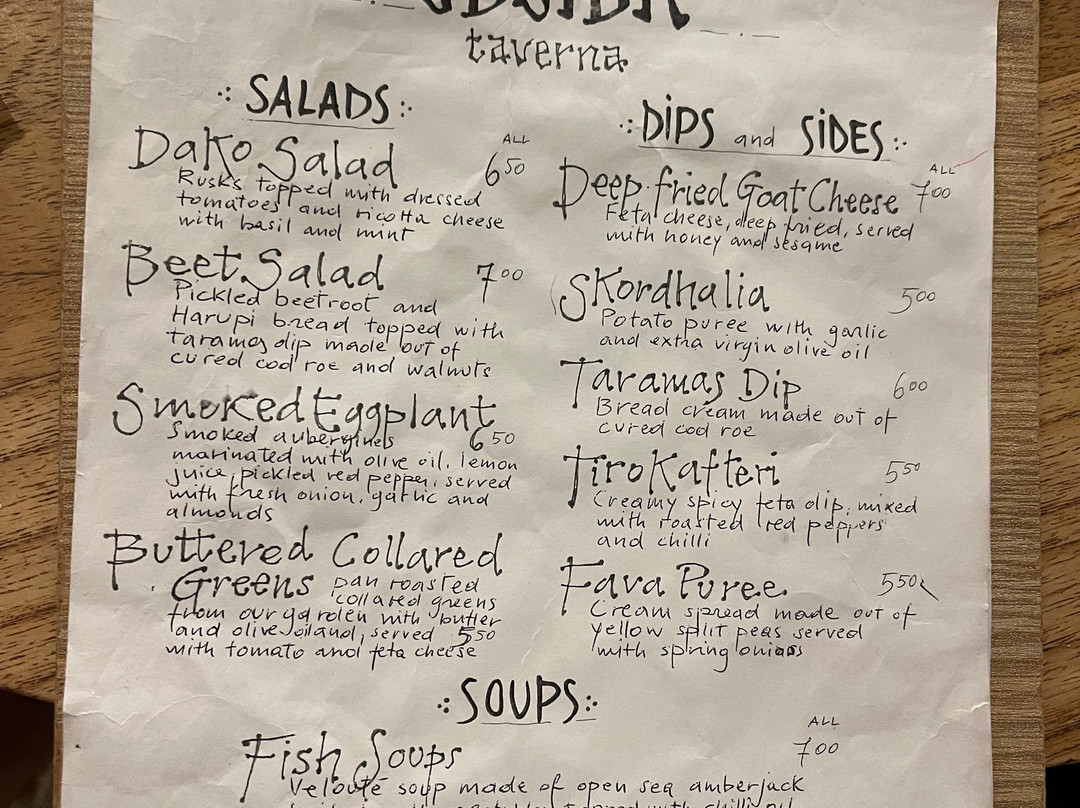 taverna
SALADS
ALL
Dako Salad 6 50
Rusks topped with dressed
tomatoes and ricotta cheese
with basil and mint
Beet Salad 7 00
Pickled beetroot and
Harupi bread topped with
taramas dip made out of
cured cod roe and walnuts
Smoked Eggplant
Smoked auberginels 6 50
marinated with olive oil, lemon
juice, pickled red pepper, served
with fresh onion, garlic and
almonds
Buttered Collared
Greens pan roasted
collared greens
from our garden with butter
and olive oiland, served 5 50
with tomato and feta cheese
DiPS and SiDES
ALL
Deep fried Goat Cheese 7 00
Feta cheese, deep fried, served
with honey and sesame
Skordhalia 5 00
Potato puree with garlic
and extra virgin olive oil
Taramas Dip 6 00
Bread cream made out of
cured cod roe
Tirokafteri 5 50
Creamy spicy feta dip, mixed
with roasted red peppers
and chilli
Fava Puree 5 50
Cream spread made out of
yellow split peas served
with spring onions
SOUPS
ALL
Fish Soups 7 00
Velouté soup made of open sea amberjack